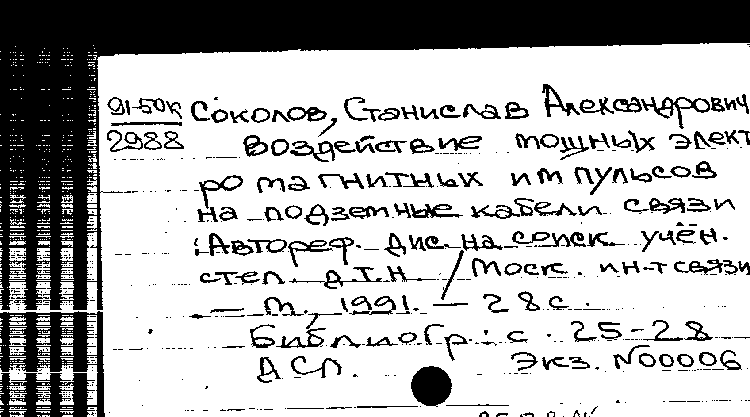 91-50к Соколов, Станислав Александрович
2988 Воздействие мощных элект
ромагнитных импульсов
на подземные кабели связи
: Автореф. дис. на соиск. учён.
степ. д.т.н. / Моск. ин-т связи
. — М., 1991. — 28 с.
Библиогр.: с. 25-28
ДСП. Экз. N00006